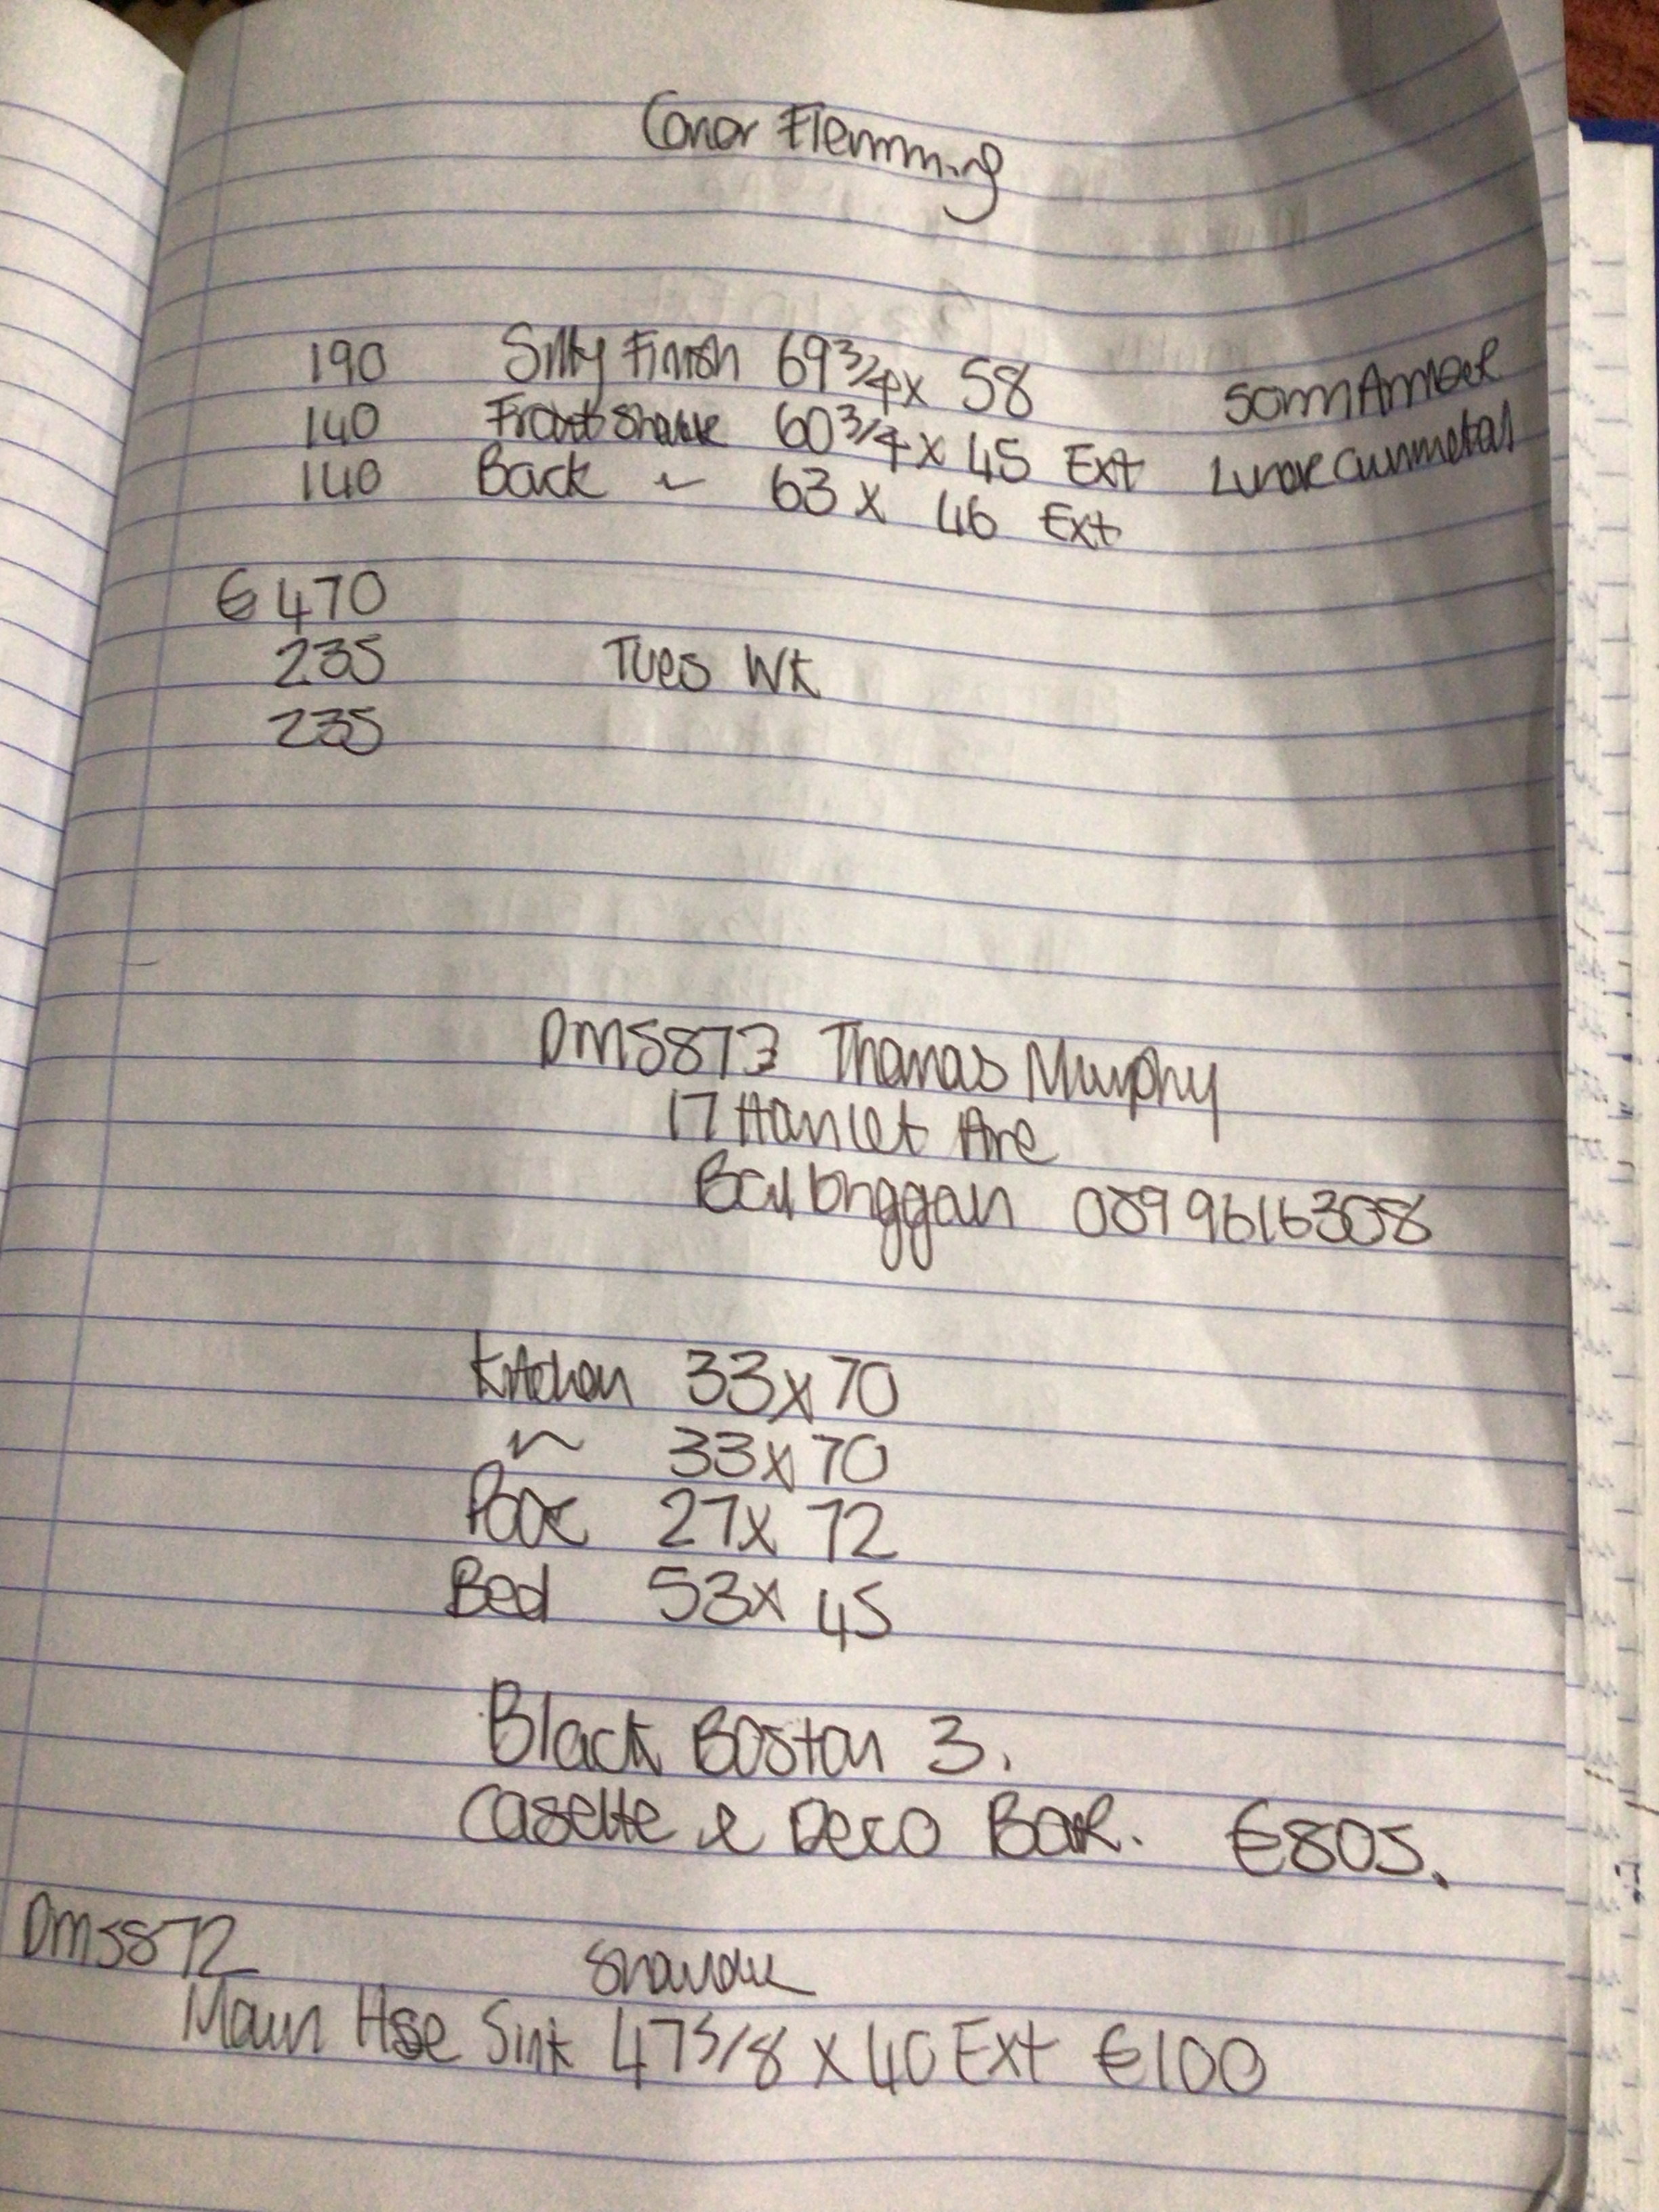 Conor Flemming
190 Silly Finish 69 3/4 x 58 50mm Amber
140 Front 60 3/4 x 45 Ext Lunar Gunmetal
140 Back ~ 63 x 46 Ext
€470
235 Tues Wk
235
DM5873 Thomas Murphy
17 Hamlet Ave
Balbriggan 0899616308
Kitchen 33 x 70
~ 33 x 70
27 x 72
Bed 53 x 45
Black Boston 3.
Casette & Deco Bar. €805.
DM5872
Main Hse Sink 47 3/8 x 40 Ext €100